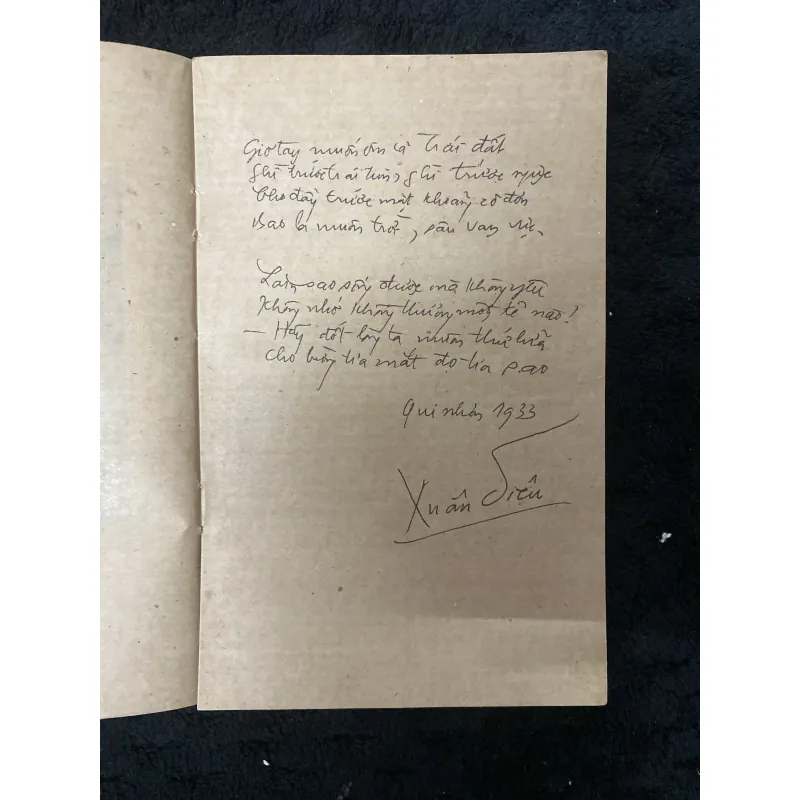 Giơ tay muốn ôm cả trái đất
ghì trước trái tim, ghì trước ngực
Cho đầy trước mắt khoảng cô đơn
Bao la muôn trời, sâu vạn vực.
Làm sao sống được mà không yêu
Không nhớ không thương một kẻ nào!
— Hãy đốt lòng ta muôn thức lửa
Cho bừng tia mắt đọ tia sao
Qui nhơn 1933
Xuân Diệu